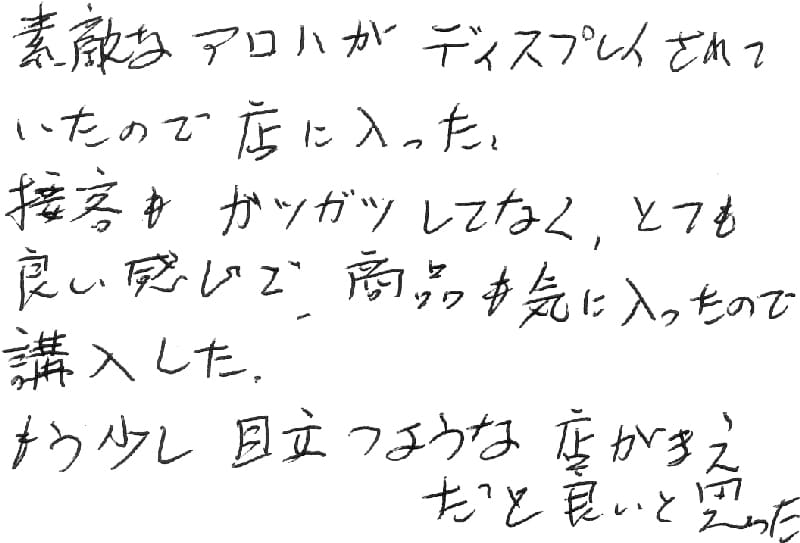 素敵なアロハがディスプレイされて
いたので店に入った。
接客もガツガツしてなく、とても
良い感じで、商品も気に入ったので
講入した。
もう少し目立つような店がまえ
だと良いと思った